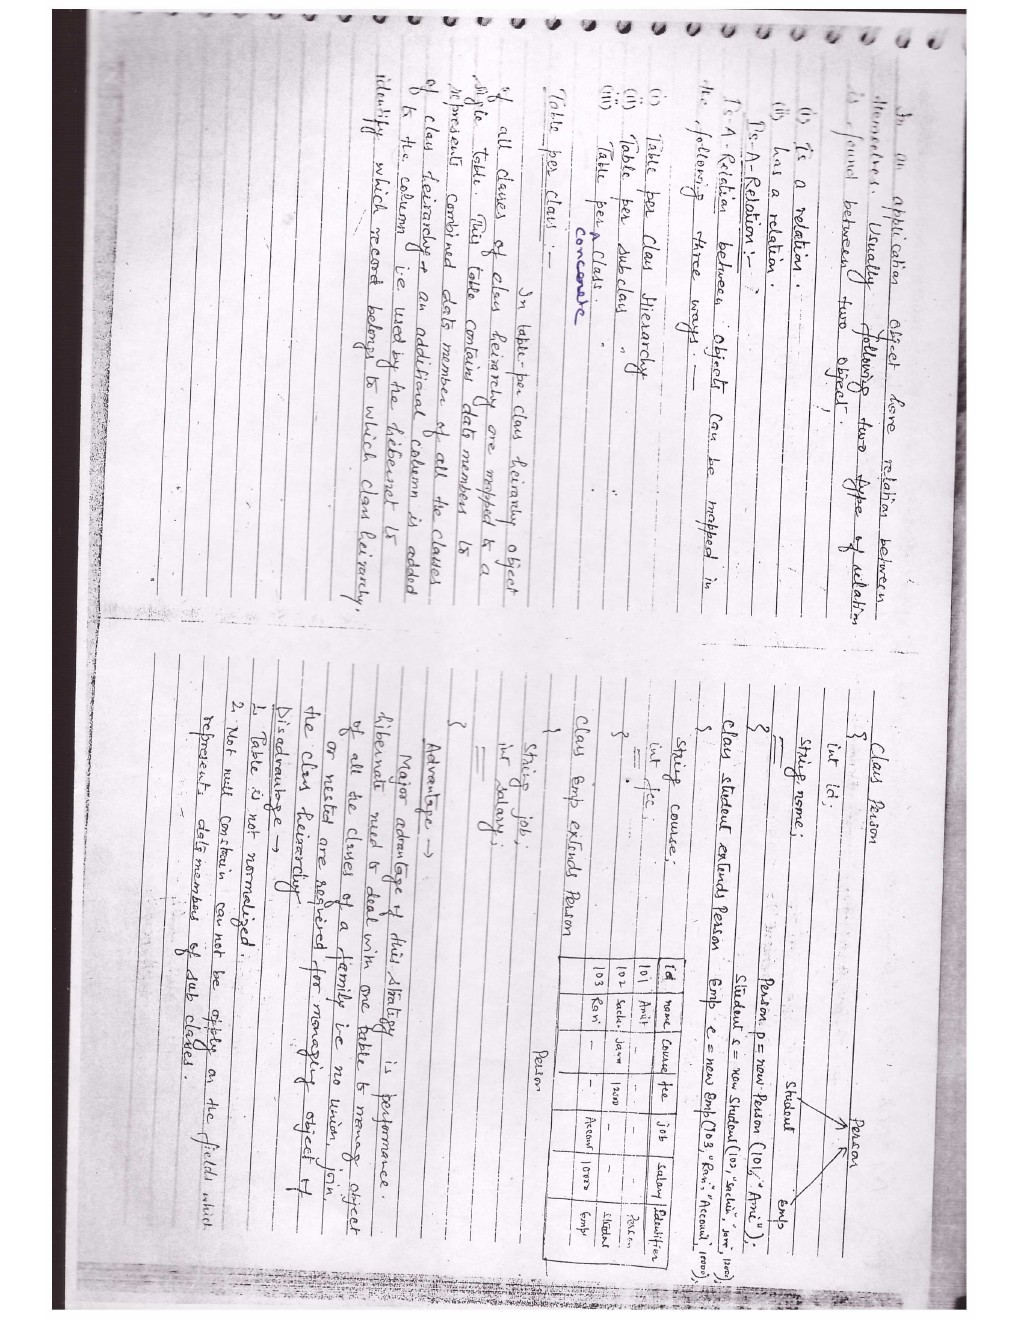 In an application object have relation between
themselves. Usually following two type of relation
is found between two object.
(i) Is a relation.
(ii) has a relation.
Is-A-Relation :-
Is-A-Relation between objects can be mapped in
the following three ways. —
(i) Table per Class Hierarchy
(ii) Table per subclass "
(iii) Table per ^ Class.
concrete
Table per class :—
In table-per class heirarhy object
of all classes of class heirarchy are mapped to a
single table. This table contains data members to
represents combined data member of all the classes
of class heirarchy + an additional column is added
to the column i.e used by the hibernet to
identify which record belongs to which class heirarchy.
Class Person
{
int id;
String name;
}
Class student extends Person
{
String course;
int fee;
}
Class Emp extends Person
{
String job;
int salary;
}
Person
Student Emp
Person p = new Person (101, "Ami");
Student s = new Student (102, "Sachin", "Java", 12000);
Emp e = new Emp (103, "Ravi", "Account", 10000);
Id name Course fee job salary Identifier
101 Amit – – – – Person
102 Sachi. Java 12000 – – Student
103 Ravi – – Accout 10000 Emp
Person
Advantage →
Major advantage of this strategy is performance.
hibernate need to deal with one table to manag object
of all the classes of a family i.e no union, join,
or nested are required for managing object of
the class heirarchy
Disadvantage →
1. Table is not normalized.
2. Not null constrain can not be apply on the fields which
represents data members of sub classes.